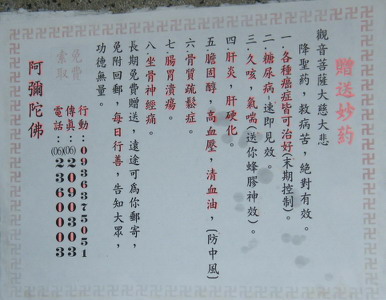 贈送妙药
觀音菩薩大慈大悲
降聖藥，救病苦，絕對有效。
一.各種癌症皆可治好(末期控制)。
二.糖尿病，速即見效。
三.久咳，氣喘(送你蜂膠神效)。
四.肝炎，肝硬化。
五.膽固醇，高血壓，清血油，(防中風)
六.骨質疏鬆症。
七.腸胃潰瘍。
八.坐骨神經痛。
長期免費贈送，遠途可為你郵寄，
免附回郵，每日行善，告知大眾，
功德無量。
行動：0936375051
傳真：(06)2090303
電話：(06)2360003
免費
索取
阿彌陀佛